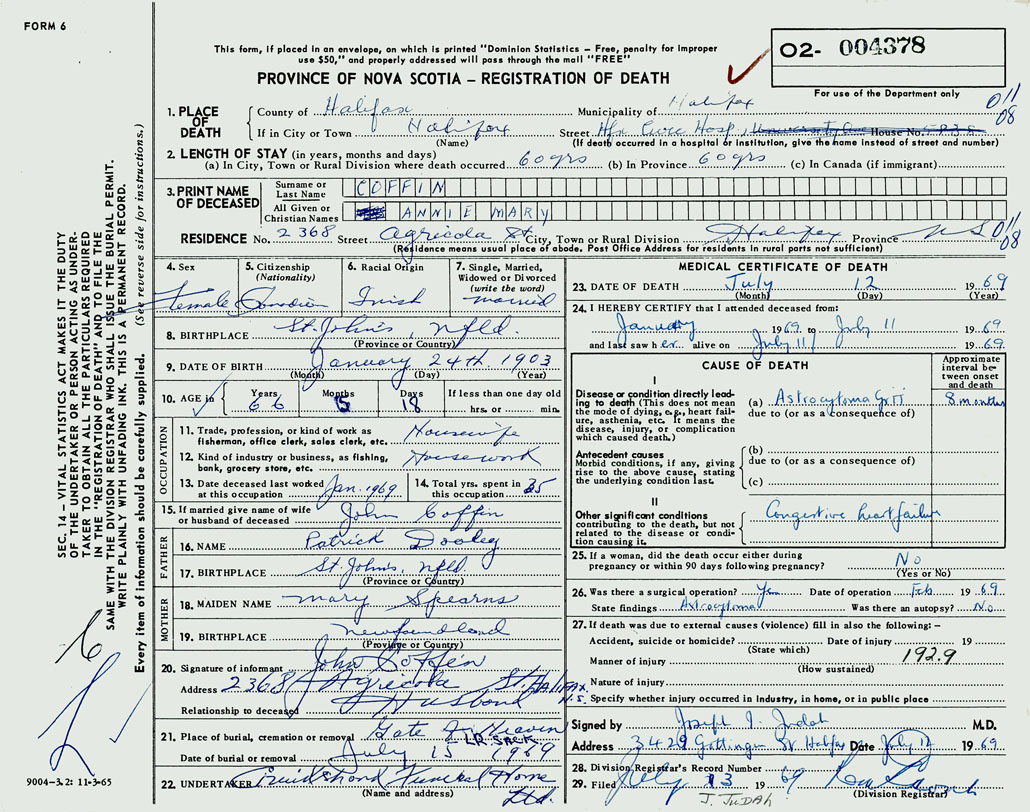 FORM 6
This form, if placed in an envelope, on which is printed "Dominion Statistics – Free, penalty for improper
use $50," and properly addressed will pass through the mail "FREE"
PROVINCE OF NOVA SCOTIA – REGISTRATION OF DEATH
02- 004378
For use of the Department only
011
08
1. PLACE OF DEATH
County of Halifax Municipality of Halifax
If in City or Town Halifax Street Hfx Civic Hosp, University Ave House No.
(Name) (If death occurred in a hospital or institution, give the name instead of street and number)
2. LENGTH OF STAY (in years, months and days)
(a) In City, Town or Rural Division where death occurred 60 yrs (b) In Province 60 yrs (c) In Canada (if immigrant)
3. PRINT NAME OF DECEASED
Surname or Last Name COFFIN
All Given or Christian Names ANNIE MARY
RESIDENCE No. 2368 Street Agricola St. City, Town or Rural Division Halifax Province N S 011
08
(Residence means usual place of abode. Post Office Address for residents in rural parts not sufficient)
4. Sex Female
5. Citizenship (Nationality) Canadian
6. Racial Origin Irish
7. Single, Married, Widowed or Divorced (write the word) married
8. BIRTHPLACE St. John's Nfld.
(Province or Country)
9. DATE OF BIRTH January 24th 1903
(Month) (Day) (Year)
10. AGE in Years 66 Months 5 Days 18 If less than one day old
hrs. or min.
OCCUPATION
11. Trade, profession, or kind of work as fisherman, office clerk, sales clerk, etc. Housewife
12. Kind of industry or business, as fishing, bank, grocery store, etc. Housework
13. Date deceased last worked at this occupation Jan. 1969
14. Total yrs. spent in this occupation 35
15. If married give name of wife or husband of deceased John Coffin
FATHER
16. NAME Patrick Dooley
17. BIRTHPLACE St. John's, Nfld.
(Province or Country)
MOTHER
18. MAIDEN NAME Mary Spearns
19. BIRTHPLACE Newfoundland
(Province or Country)
20. Signature of informant John Coffin
Address 2368 Agricola St. HALIFAX. N.S.
Relationship to deceased Husband
21. Place of burial, cremation or removal Gate of Heaven
LR. SACK.
Date of burial or removal July 15 1969
22. UNDERTAKER Cruikshank Funeral Home Ltd.
(Name and address)
MEDICAL CERTIFICATE OF DEATH
23. DATE OF DEATH July 12 1969
(Month) (Day) (Year)
24. I HEREBY CERTIFY that I attended deceased from:
January 1969 to July 11 1969
and last saw her alive on July 11 1969
CAUSE OF DEATH
Approximate interval between onset and death
I
Disease or condition directly leading to death (This does not mean the mode of dying, e.g., heart failure, asthenia, etc. It means the disease, injury, or complication which caused death.)
(a) Astrocytoma Gr II 8 months
due to (or as a consequence of)
Antecedent causes
Morbid conditions, if any, giving rise to the above cause, stating the underlying condition last.
(b)
due to (or as a consequence of)
(c)
II
Other significant conditions contributing to the death, but not related to the disease or condition causing it. Congestive heart failure
25. If a woman, did the death occur either during pregnancy or within 90 days following pregnancy? No
(Yes or No)
26. Was there a surgical operation? Yes Date of operation Feb 1969
State findings Astrocytoma Was there an autopsy? No
27. If death was due to external causes (violence) fill in also the following: –
Accident, suicide or homicide? Date of injury 19
(State which)
Manner of injury 1929
(How sustained)
Nature of injury
Specify whether injury occurred in industry, in home, or in public place
Signed by Joseph J. Judah M.D.
Address 3429 Gottingen St. Halifax Date July 12 1969
28. Division Registrar's Record Number
29. Filed July 13 1969
(Division Registrar)
J. JUDAH
SEC. 14 – VITAL STATISTICS ACT MAKES IT THE DUTY
OF THE UNDERTAKER OR PERSON ACTING AS UNDER-
TAKER TO OBTAIN ALL THE PARTICULARS REQUIRED
IN THE "REGISTRATION OF DEATH" AND TO FILE THE
SAME WITH THE DIVISION REGISTRAR WHO SHALL ISSUE THE BURIAL PERMIT.
WRITE PLAINLY WITH UNFADING INK. THIS IS A PERMANENT RECORD.
Every item of information should be carefully supplied. (See reverse side for instructions.)
9004-3.2: 11-3-65